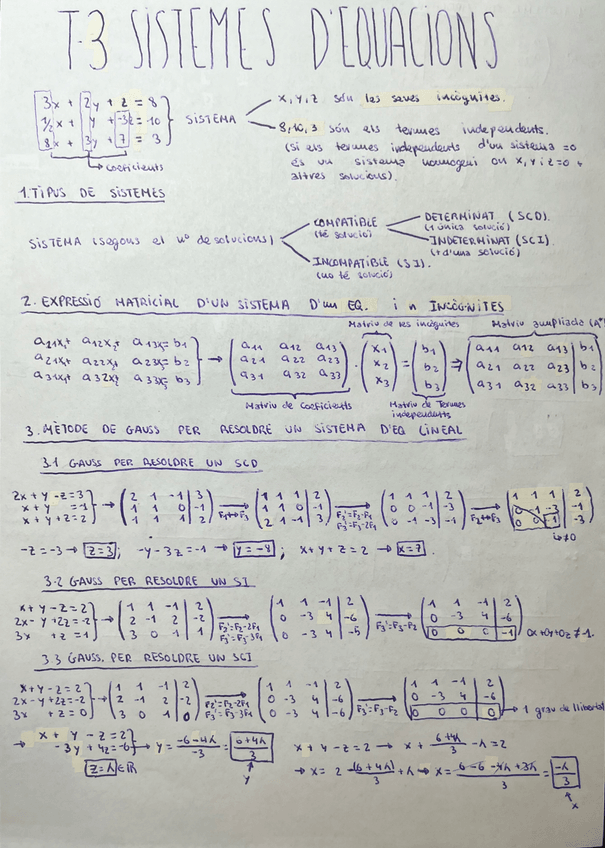 T-3 SISTEMES D'EQUACIONS
3x + 2y + z = 8
1/2x + y + -3z = 10
8x + 3y + 7 = 3
SISTEMA
x, y, z són les seves incògnites.
8, 10, 3 són els termes independents.
(si els termes independents d'un sistema =0
és un sistema homogeni on x, y i z=0 +
altres solucions).
coeficients
1. TIPUS DE SISTEMES
SISTEMA (segons el nº de solucions)
COMPATIBLE
(té solució)
DETERMINAT (SCD).
(1 única solució)
INDETERMINAT (SCI)
(+ d'una solució).
INCOMPATIBLE (SI).
(no té solució)
2. EXPRESSIÓ MATRICIAL D'UN SISTEMA D'un EQ. i n INCÒGNITES
Matriu de les incògnites
Matriu ampliada (A*)
a21x1+ a12x2+ a13x= b1
a21x1+ a22x2+ a23x= b2
a31x1+ a32x2+ a33x= b3
→ ( a11 a12 a13 / a21 a22 a23 / a31 a32 a33 ) · ( x1 / x2 / x3 ) = ( b1 / b2 / b3 ) ⇒ ( a11 a12 a13 | b1 / a21 a22 a23 | b2 / a31 a32 a33 | b3 )
Matriu de Coeficients
Matriu de Termes
independents
3. MÈTODE DE GAUSS PER RESOLDRE UN SISTEMA D'EQ LINEAL
3.1 GAUSS PER RESOLDRE UN SCD
2x + y - z = 3
x + y = -1
x + y + z = 2
→ ( 2 1 -1 | 3 / 1 1 0 | -1 / 1 1 1 | 2 ) F1↔F3 ( 1 1 1 | 2 / 1 1 0 | -1 / 2 1 -1 | 3 ) F2'=F2-F1 F3'=F3-2F1 ( 1 1 1 | 2 / 0 0 -1 | -3 / 0 -1 -3 | -1 ) F2↔F3 ( 1 1 1 | 2 / 0 -1 -3 | -1 / 0 0 -1 | -3 )
≠0
-z = -3 → z = 3 ; -y - 3z = -1 → y = -8 ; x + y + z = 2 → x = 7 .
3.2 GAUSS PER RESOLDRE UN SI
x + y - z = 2
2x - y + 2z = -2
3x + z = 1
→ ( 1 1 -1 | 2 / 2 -1 2 | -2 / 3 0 1 | 1 ) F2'=F2-2F1 F3'=F3-3F1 ( 1 1 -1 | 2 / 0 -3 4 | -6 / 0 -3 4 | -5 ) F3'=F3-F2 ( 1 1 -1 | 2 / 0 -3 4 | -6 / 0 0 0 | -1 ) 0x+0y+0z ≠ -1.
3.3 GAUSS. PER RESOLDRE UN SCI
x + y - z = 2
2x - y + 2z = -2
3x + z = 0
→ ( 1 1 -1 | 2 / 2 -1 2 | -2 / 3 0 1 | 0 ) F2'=F2-2F1 F3'=F3-3F1 ( 1 1 -1 | 2 / 0 -3 4 | -6 / 0 -3 4 | -6 ) F3'=F3-F2 ( 1 1 -1 | 2 / 0 -3 4 | -6 / 0 0 0 | 0 ) → 1 grau de llibertat
→ x + y - z = 2
-3y + 4z = -6
z = λ ∈ ℝ
→ y = (-6-4λ)/-3 = (6+4λ)/3
y
x + y - z = 2 → x + (6+4λ)/3 - λ = 2
→ x = 2 - (6+4λ)/3 + λ → x = (6-6-4λ+3λ)/3 = -λ/3
x